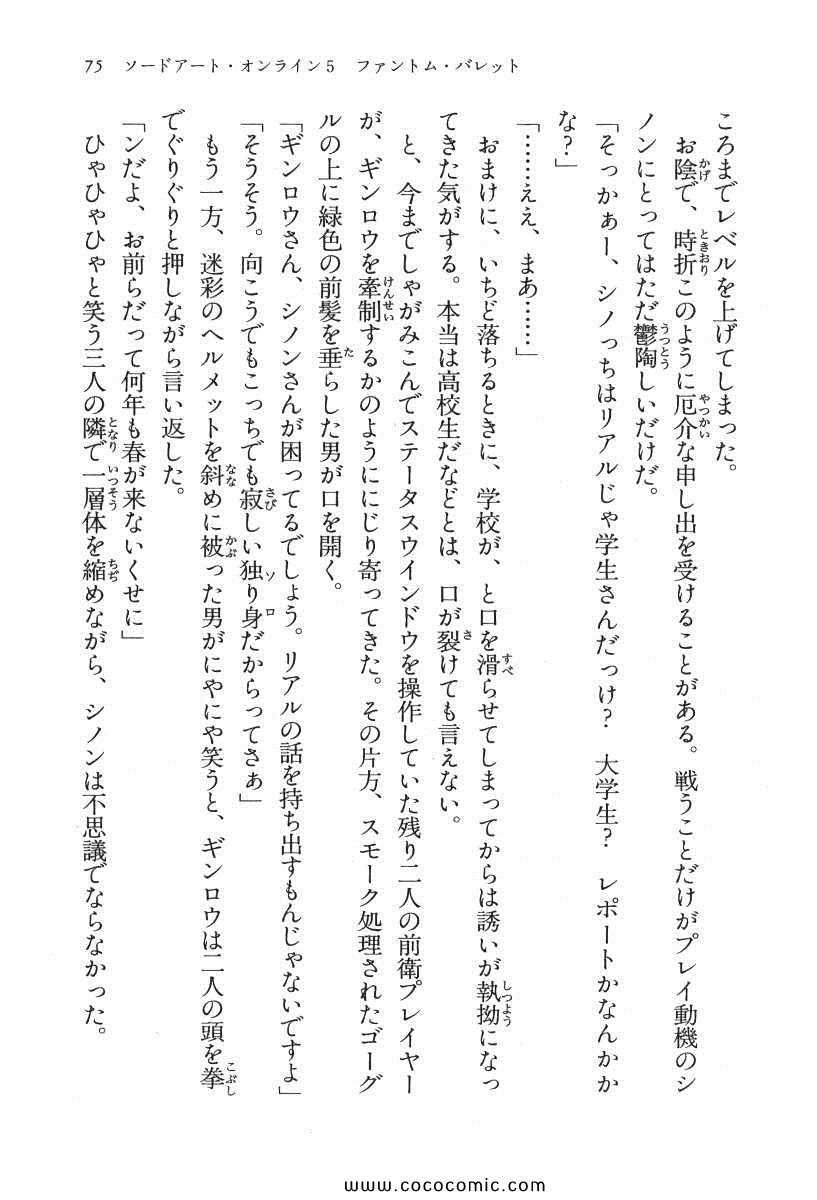 75　ソードアート・オンライン5　ファントム・バレット
ころまでレベルを上げてしまった。
お陰で、時折このように厄介な申し出を受けることがある。戦うことだけがプレイ動機のシ
ノンにとってはただ鬱陶しいだけだ。
「そっかぁー、シノっちはリアルじゃ学生さんだっけ？　大学生？　レポートかなんかか
な？」
「……ええ、まあ……」
おまけに、いちど落ちるときに、学校が、と口を滑らせてしまってからは誘いが執拗になっ
てきた気がする。本当は高校生だなどとは、口が裂けても言えない。
と、今までしゃがみこんでステータスウインドウを操作していた残り二人の前衛プレイヤー
が、ギンロウを牽制するかのようににじり寄ってきた。その片方、スモーク処理されたゴーグ
ルの上に緑色の前髪を垂らした男が口を開く。
「ギンロウさん、シノンさんが困ってるでしょう。リアルの話を持ち出すもんじゃないですよ」
「そうそう。向こうでもこっちでも寂しい独り身だからってさぁ」
もう一方、迷彩のヘルメットを斜めに被った男がにやにや笑うと、ギンロウは二人の頭を拳
でぐりぐりと押しながら言い返した。
「ンだよ、お前らだって何年も春が来ないくせに」
ひゃひゃひゃと笑う三人の隣で一層体を縮めながら、シノンは不思議でならなかった。
www.cococomic.com